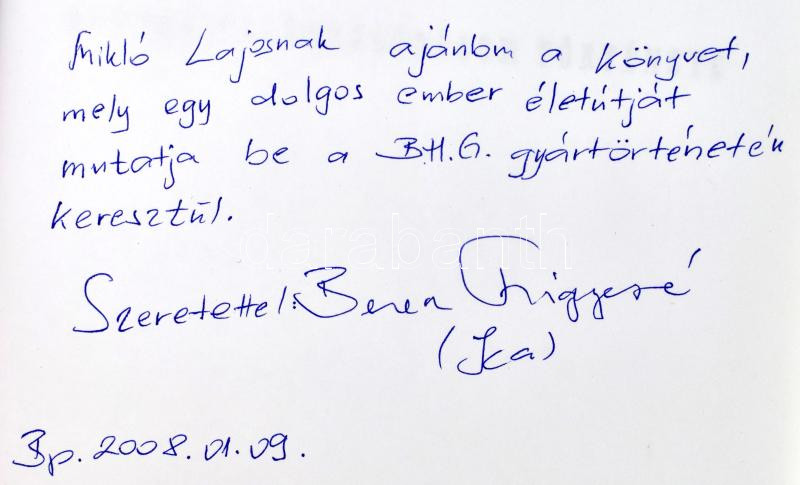 Mikló Lajosnak ajánlom a könyvet,
mely egy dolgos ember életútját
mutatja be a B.H.G. gyártörténetén
keresztül.
darabanth
Szeretettel: Frigyesné
(Ica)
Bp. 2008.01.09.